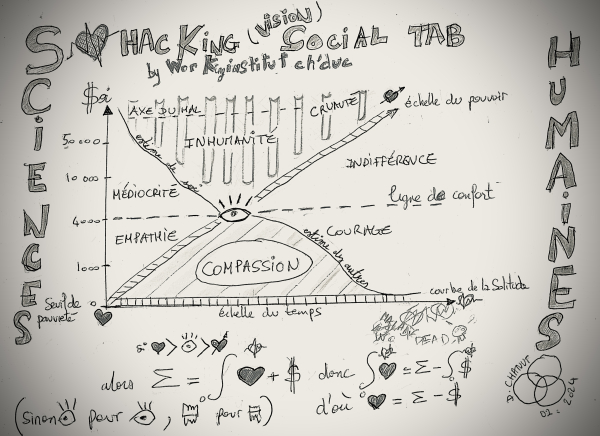 SCiENCES
HUMAiNES
HACKiNG (ViSiON) SOCiAL TAB
by
$
AXE DU MAL
CRUAUTÉ
échelle du pouvoir
50 000
INHUMANITÉ
estime de soi
10 000
INDIFFÉRENCE
MÉDIOCRITÉ
ligne de confort
4000
EMPATHIE
COURAGE
estime des autres
COMPASSION
1000
courbe de la Solitude
Seuil de pauvreté
0
échelle du temps
DEAD
si ♥ > > ♥
alors Σ = ∫ ♥ + $
donc ∫ ♥ = Σ - ∫ $
d'où ♥ = Σ - $
(sinon pour , pour )
A CHANUT
02. 2024